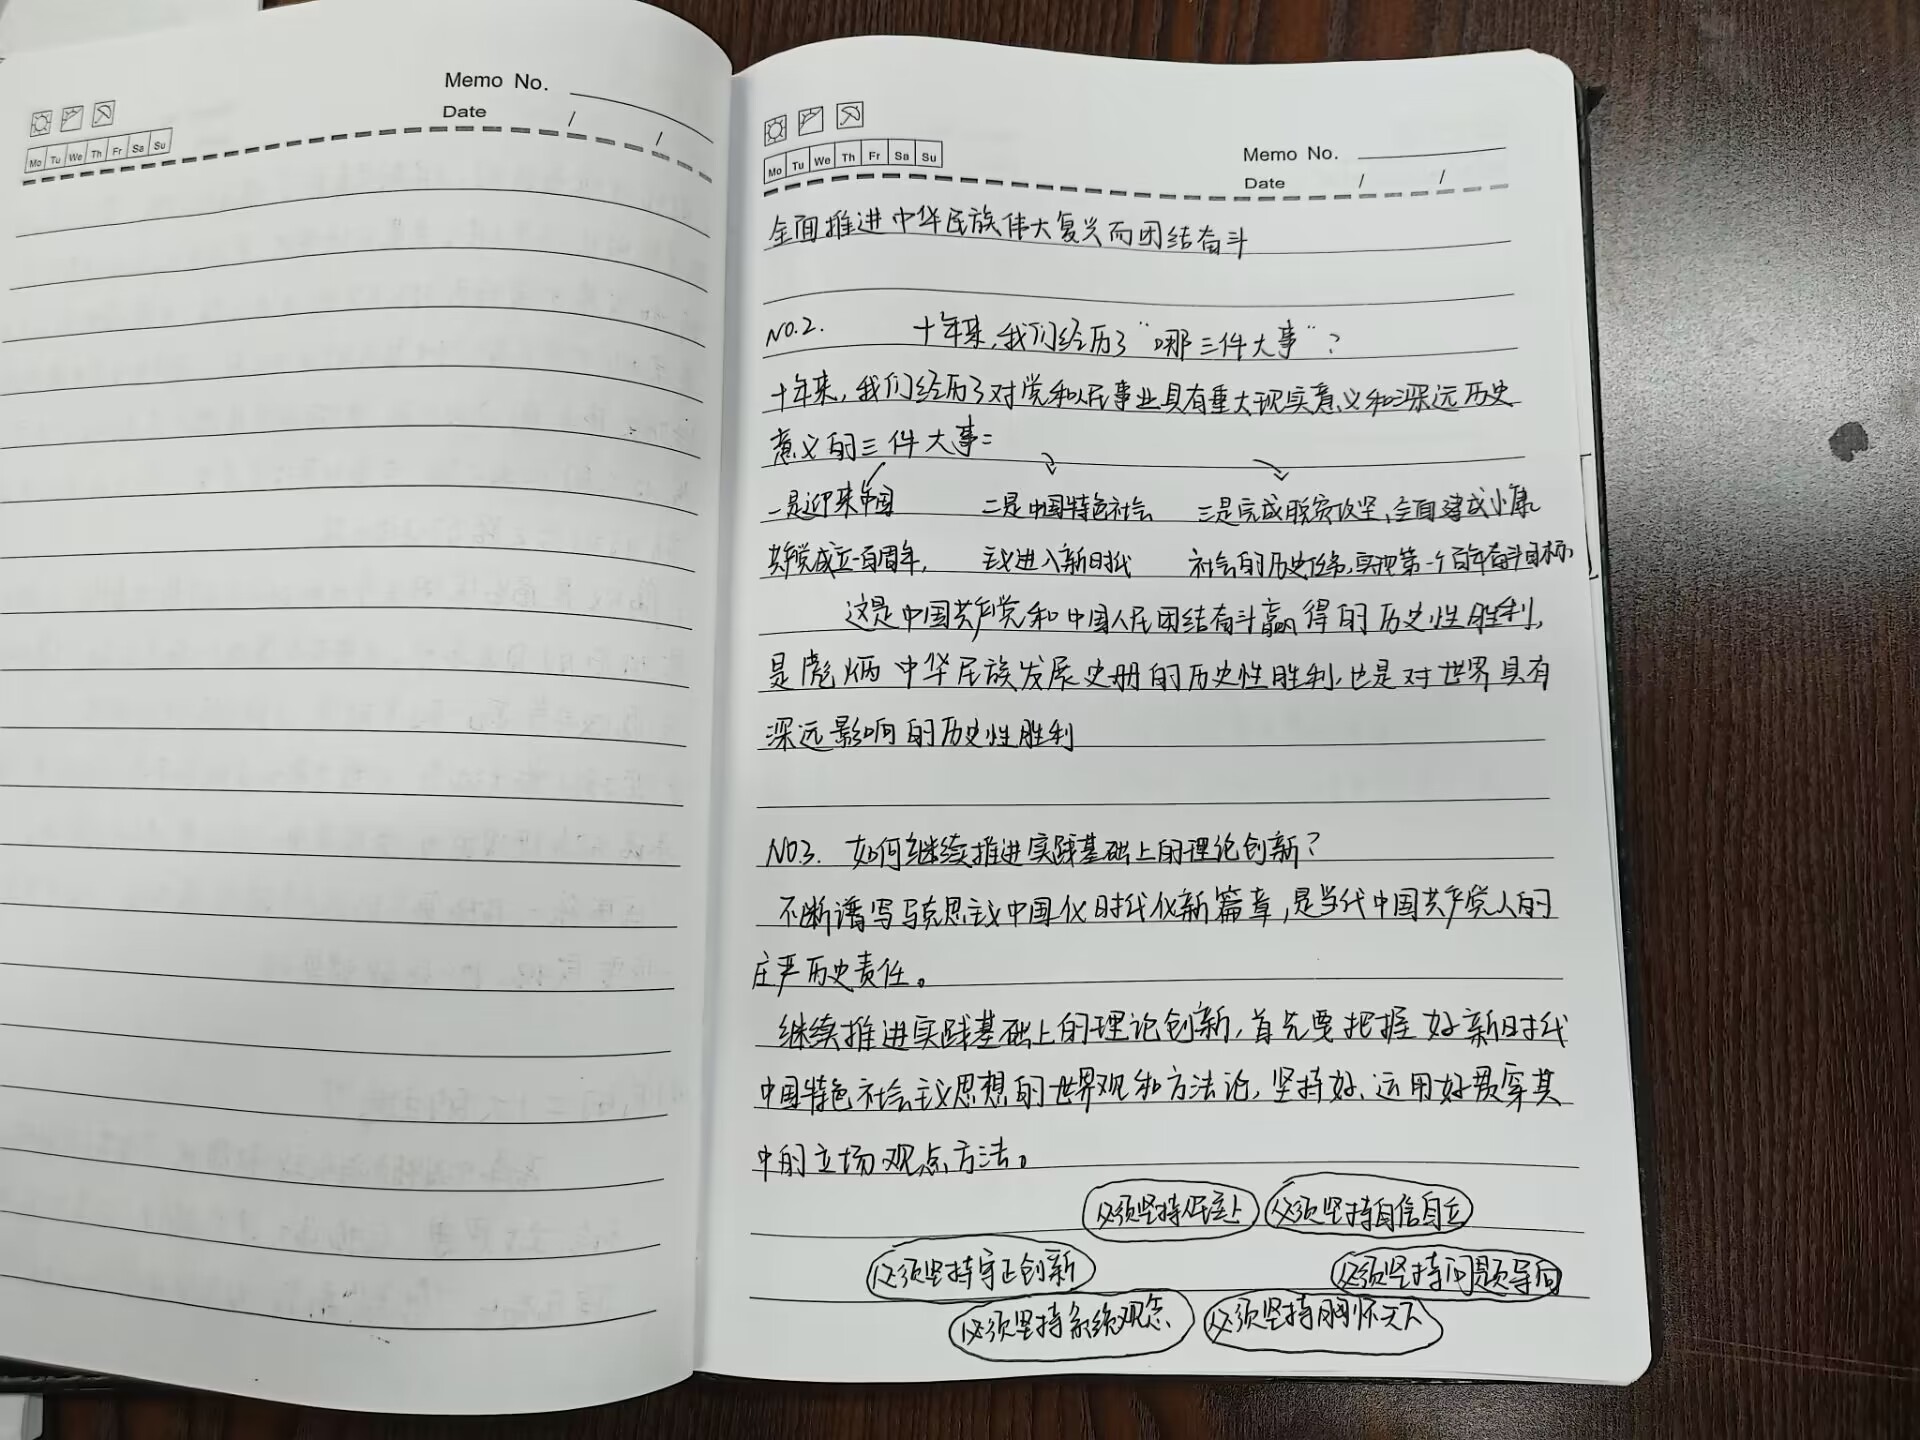 Memo No.
Date / /
Mo Tu We Th Fr Sa Su
Memo No.
Date / /
Mo Tu We Th Fr Sa Su
全面推进中华民族伟大复兴而团结奋斗
NO.2. 十年来,我们经历了"哪三件大事"?
十年来,我们经历了对党和人民事业具有重大现实意义和深远历史
意义的三件大事:
一是迎来中国 二是中国特色社会 三是完成脱贫攻坚,全面建成小康
共产党成立一百周年, 主义进入新时代 社会的历史任务,实现第一个百年奋斗目标.
这是中国共产党和中国人民团结奋斗赢得的历史性胜利,
是彪炳中华民族发展史册的历史性胜利,也是对世界具有
深远影响的历史性胜利
NO3. 如何继续推进实践基础上的理论创新?
不断谱写马克思主义中国化时代化新篇章,是当代中国共产党人的
庄严历史责任。
继续推进实践基础上的理论创新,首先要把握好新时代
中国特色社会主义思想的世界观和方法论,坚持好、运用好贯穿其
中的立场观点方法。
必须坚持人民至上 必须坚持自信自立
必须坚持守正创新 必须坚持问题导向
必须坚持系统观念 必须坚持胸怀天下